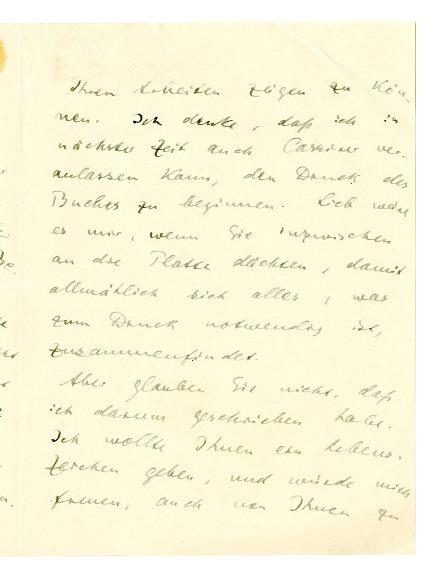 Ihren Arbeiten zeigen zu kön-
nen. Ich denke, daß ich in
nächster Zeit auch Cassirer ver-
anlassen kann, den Druck des
Buches zu beginnen. Lieb wäre
es mir, wenn Sie inzwischen
an die Platte dächten, damit
allmählich sich alles, was
zum Druck notwendig ist,
zusammenfindet.
Aber glauben Sie nicht, daß
ich darum geschrieben habe.
Ich wollte Ihnen ein Lebens-
zeichen geben, und würde mich
freuen, auch von Ihnen zu